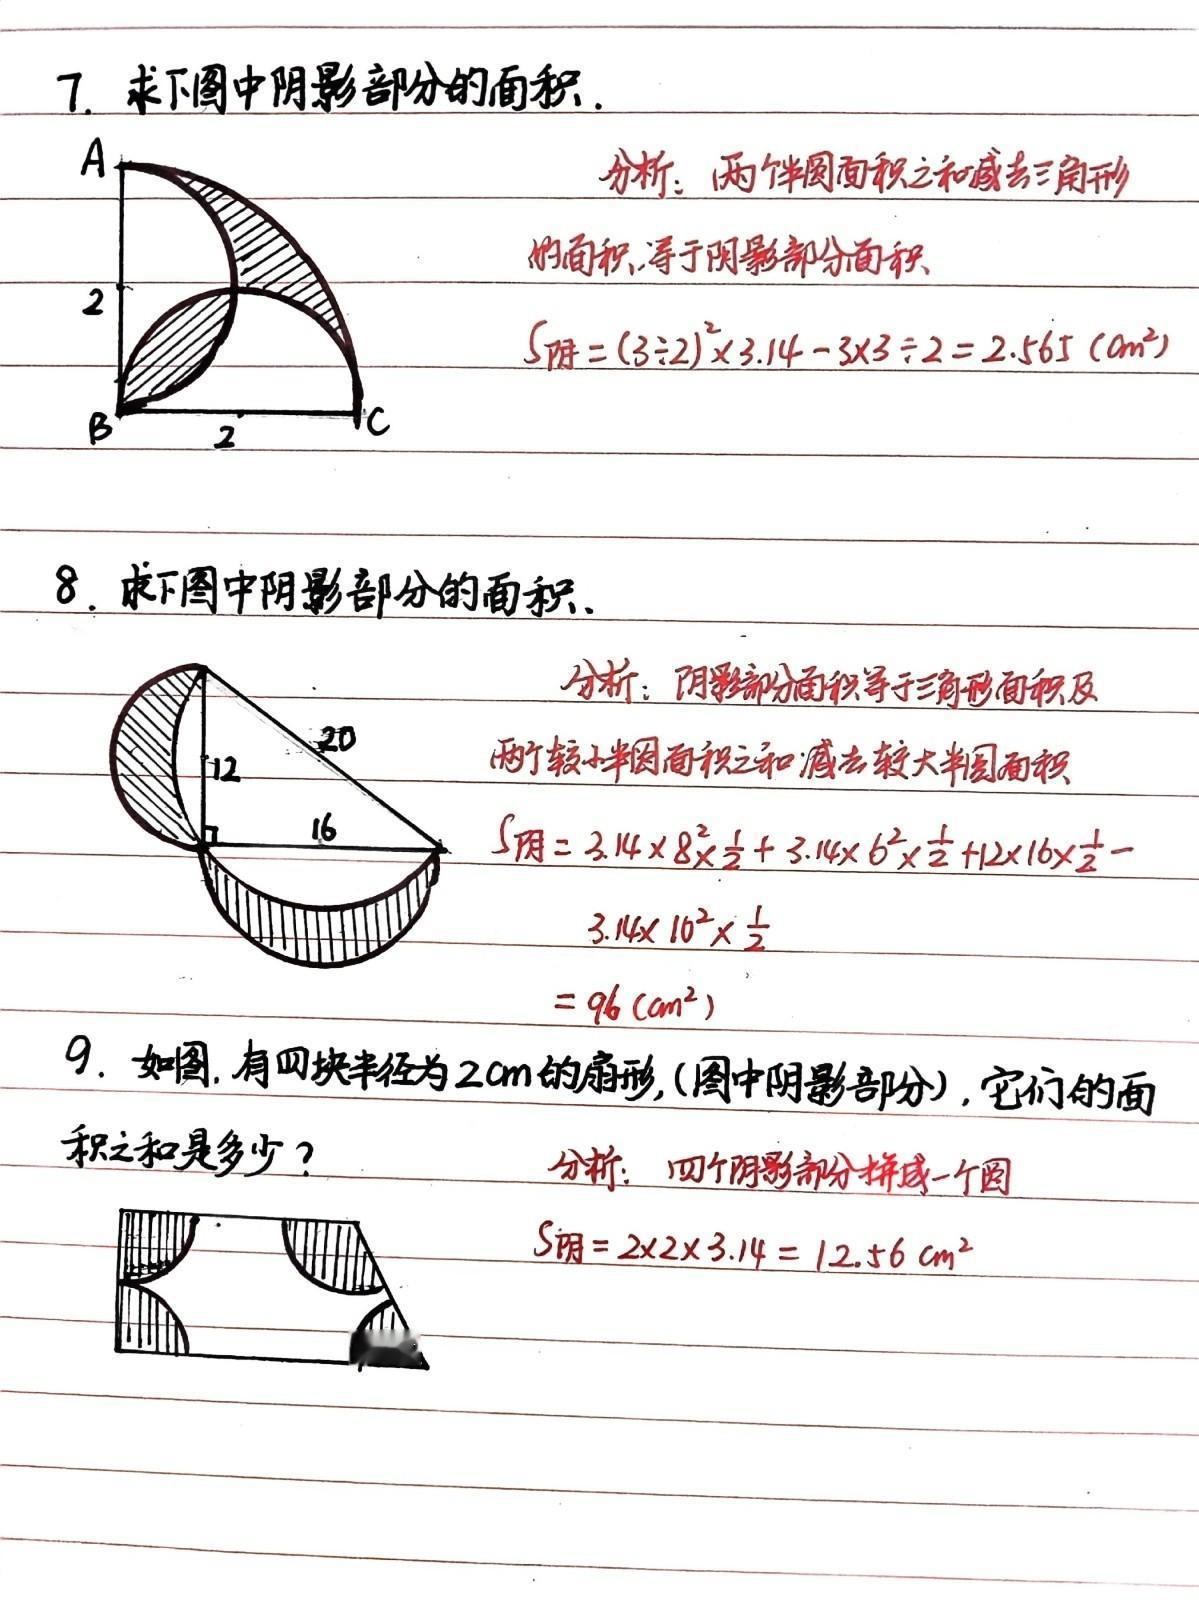 7. 求下图中阴影部分的面积.
A
2
B
2
C
分析: 两个半圆面积之和减去三角形
的面积,等于阴影部分面积
S阴=(3÷2)²×3.14-3×3÷2=2.565 (cm²)
8. 求下图中阴影部分的面积、
20
12
16
分析: 阴影部分面积等于三角形面积及
两个较小半圆面积之和减去较大半圆面积
S阴=3.14×8²×1/2+3.14×6²×1/2+12×16×1/2-
3.14×10²×1/2
=96 (cm²)
9. 如图,有四块半径为2cm的扇形,(图中阴影部分),它们的面
积之和是多少?
分析: 四个阴影部分拼成一个圆
S阴=2×2×3.14=12.56 cm²